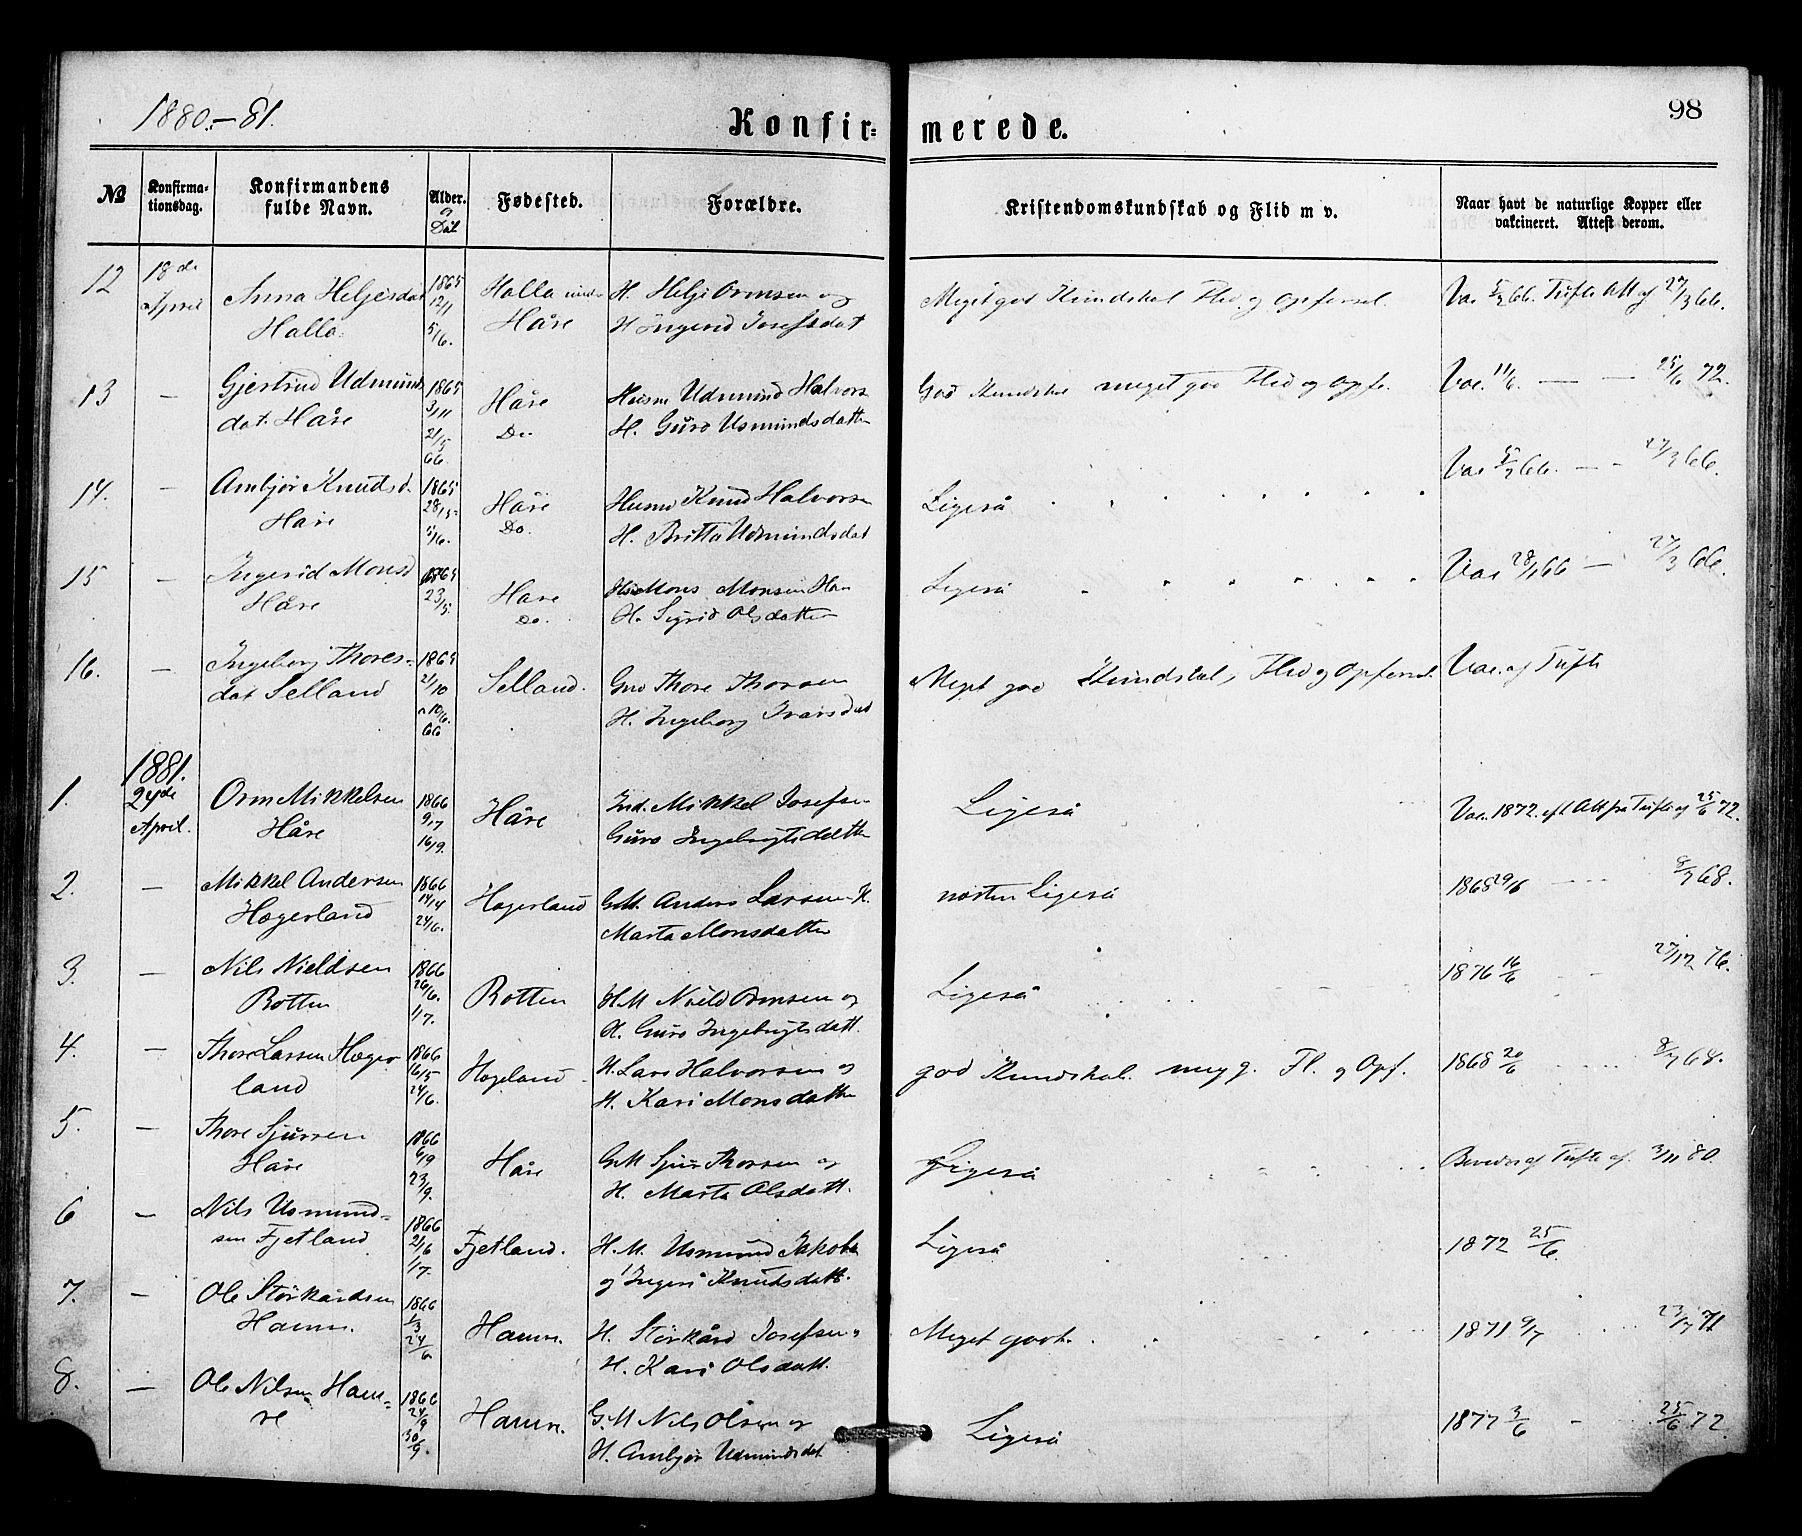 1880.-81.
98
Konfir= merede.
№
Konfirma-
tionsdag.
Konfirmandens
fulde Navn.
Alder.
Fødested.
Forældre.
Kristendomskundskab og Flid m v.
Naar havt de naturlige Kopper eller
vakcineret. Attest derom.
12 18de Anna Heljesdat 1865 Halla H. Helje Ormsen og Meget god Kundskab Flid og Opførsel. Vac 5/7 66. Tufte Att af 27/3 66.
April Halla. 12/1 Håre H Ingerid Josefsdat
5/6.
13 — Gjertrud Udmunds 1865 Håre Husm Udmund Halvors God Kundskab meget god Flid og Opf. Vac. 11/6. — — 25/6 72.
dat. Håre 3/11 Do H. Guro Usmundsdatter
21/5
66
14. — Ambjør Knutsd. 1865 Håre Husm Knud Halvorsen Ligeså Vac 5/7 66. — - 27/3 66.
Håre 28/5 Do. H. Britta Udmundsdat
15 — Ingerid Monsd 1865 Håre Mons Monsen Ligeså Vac 28/1 66 — 27/3 66.
Håre 23/5. Do. H. Sigrid Olsdatter
16. — Ingeborg Thores- 1865 Selland. Gm Thore Thorsen Meget god Kundskab, Flid og Opførsel. Vac. af Tufte
dat Selland 21/10 H. Ingeborg Ivarsdat
10/6.
66
1881.
1. 24de Orm Mikkelsen 1866 Håre Ind. Mikkel Josefsen Ligeså Vac. 1872. eft Att fra Tufte af 25/6 72.
April. Håre 9/7 Guro Ingebrigtsdatter
16/9.
2. — Mikkel Andersen 1866 Hægerland G.M. Anders Larsen H. næsten Ligeså 1868 29/6 8/7 68.
Hægerland 14/4 Marta Monsdatter
24/6.
3. — Nils Nieldsen 1866 Botten H.M Nield Ormsen og Ligeså 1876 16/6 27/12 76.
Botten 26/6. H. Guro Ingebrigtsdatt.
1/7.
4. — Thore Larsen Hæger 1866 Hægeland H. Lars Halvorsen og god Kundskab. meg g. Fl. og Opf. 1868 20/6 8/7 68.
land 16/5 H. Kari Monsdatter
24/6.
5. — Thore Sjursen 1866 Håre GM Sjur Thorsen og Ligeså Tufte af 3/11 80.
Håre 6/9 H. Marta Olsdatt.
23/9.
6 — Nils Usmund= 1866 Fjetland. H.M. Usmund Jakobs Ligeså 1872 25/6
sen Fjetland 21/6 og Ingeri Knutsdatt.
1/7.
7. — Ole Størkårdsen 1866 Hamre. H. Størkård Josefsen Meget godt. 1871 9/7 23/7 71
Hamre. 1/3 H. Kari Olsdatt.
24/6
8. — Ole Nilsen Ham= 1866 Hamre. G.M Nils Olsen og Ligeså 1877 3/6 - 25/6 72.
re 24/9 H. Ambjør Udmundsdat
30/9.